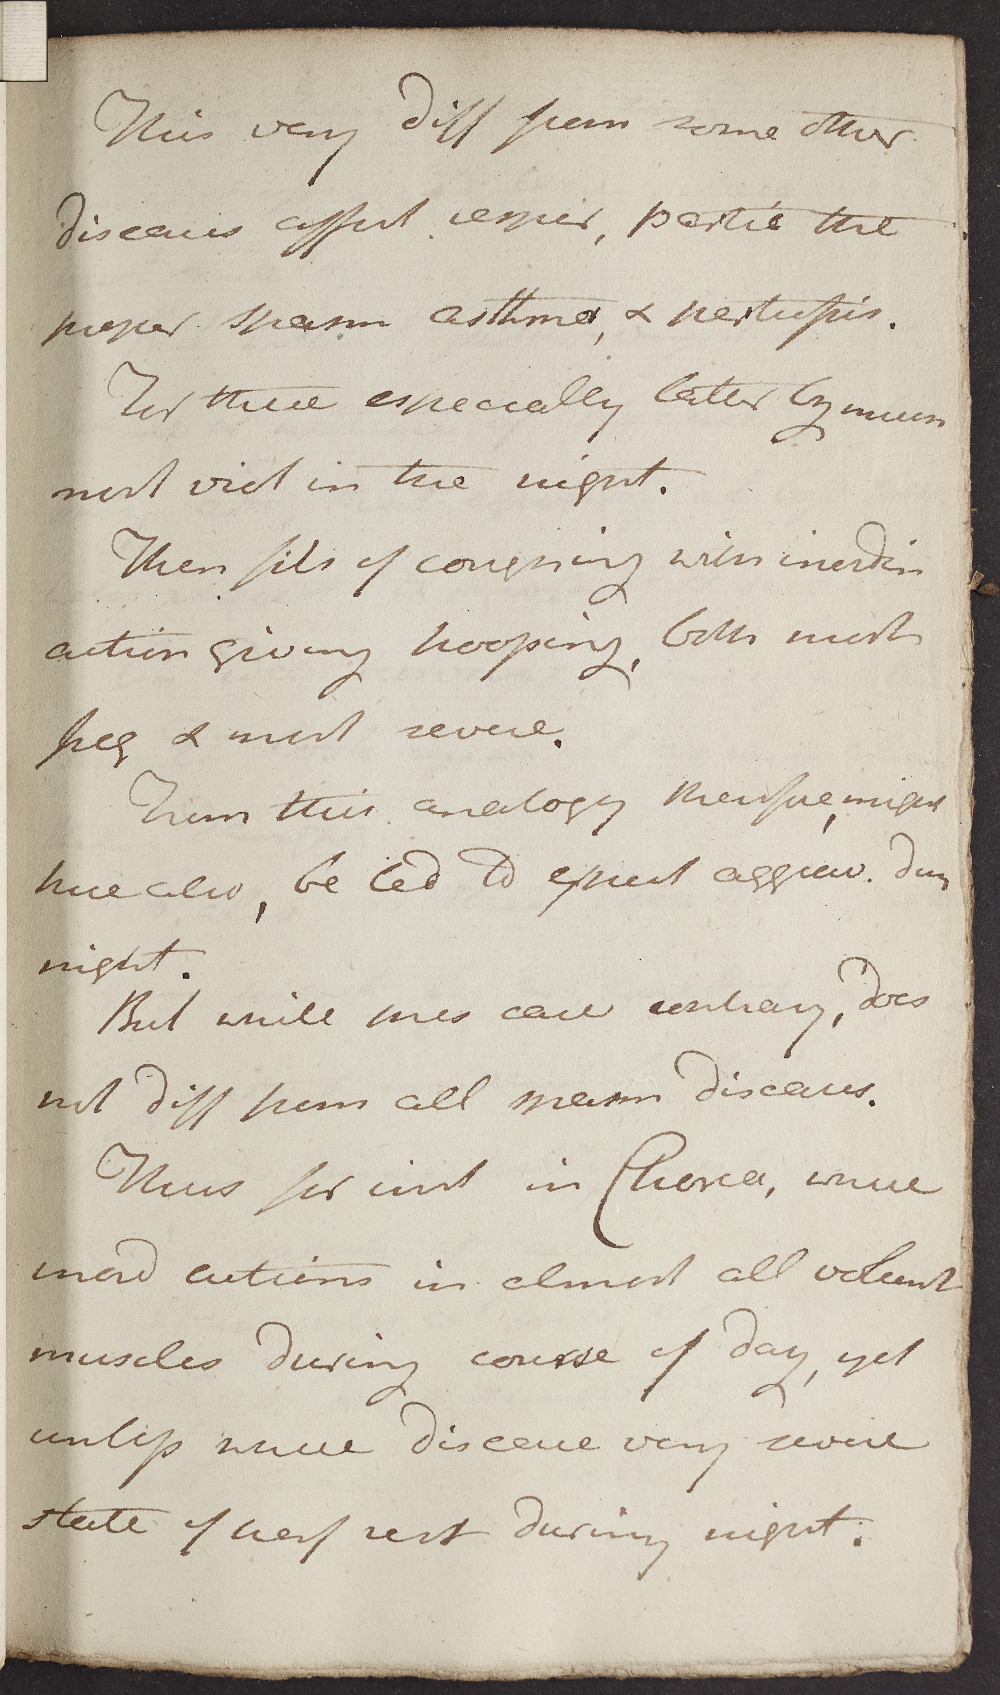 This very diff from some other
diseases affect respir, partic the
proper spasm asthma, & pertussis.
For these especially latter by means
most viol in the night.
Then fits of coughing with inordin
action giving hooping, both most
freq & most severe.
From this analogy therefore, might
here also, be led to expect aggrav. dur
night.
But while pres case contrary, does
not diff from all spasm diseases.
Thus for inst in Chorea, where
inord actions in almost all volunt
muscles during course of day, yet
unless where disease very severe
state of perf rest during night.